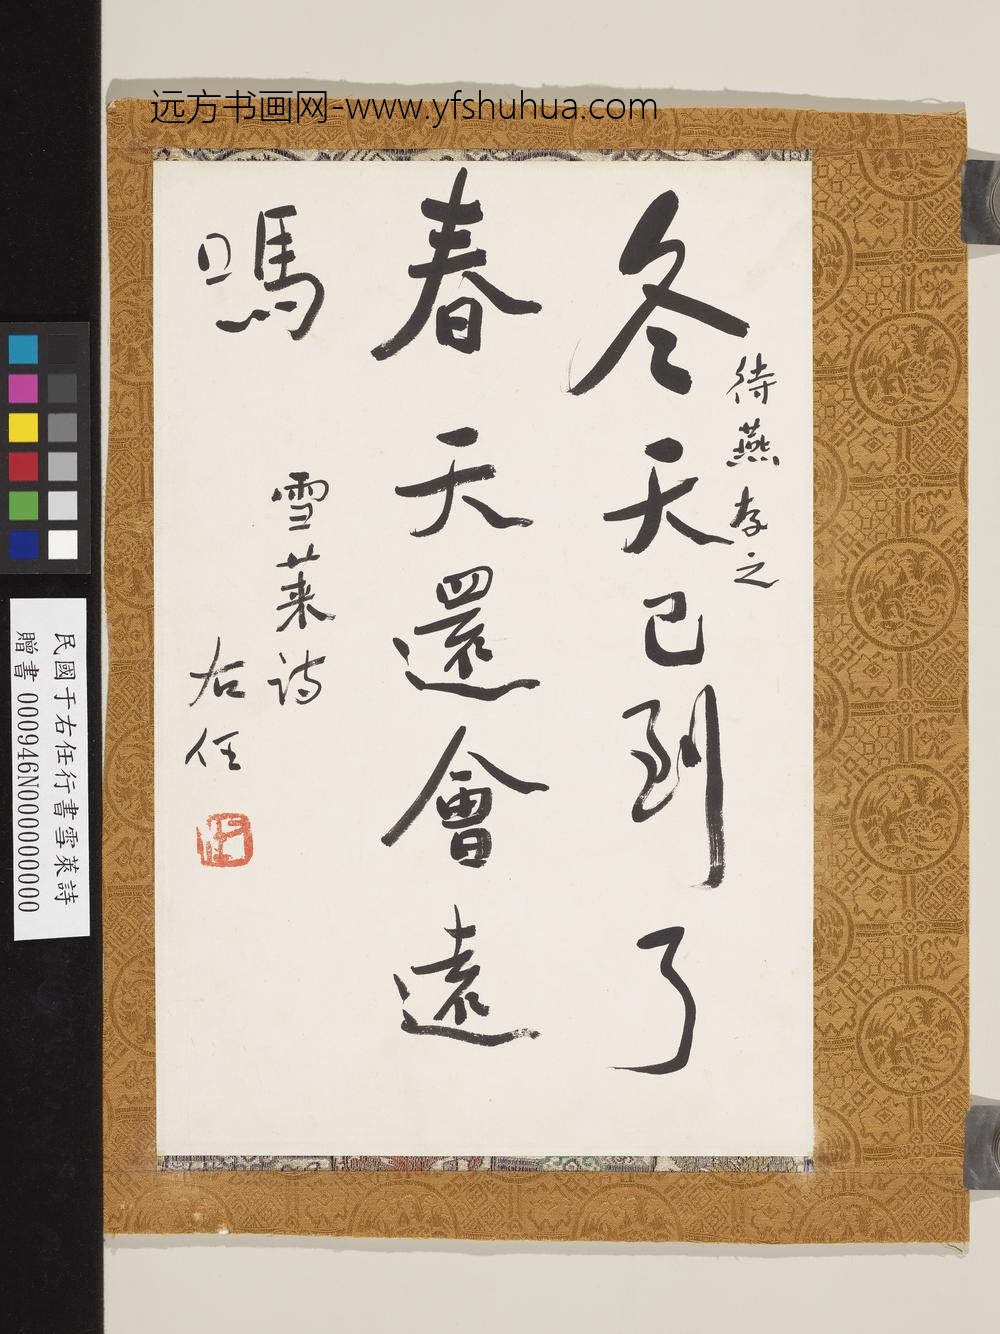 远方书画网-www.yfshuhua.com
待燕存之
冬天已到了
春天還會遠
嗎
雪萊詩
右任
民國于右任行書雪萊詩
贈書 000946N000000000